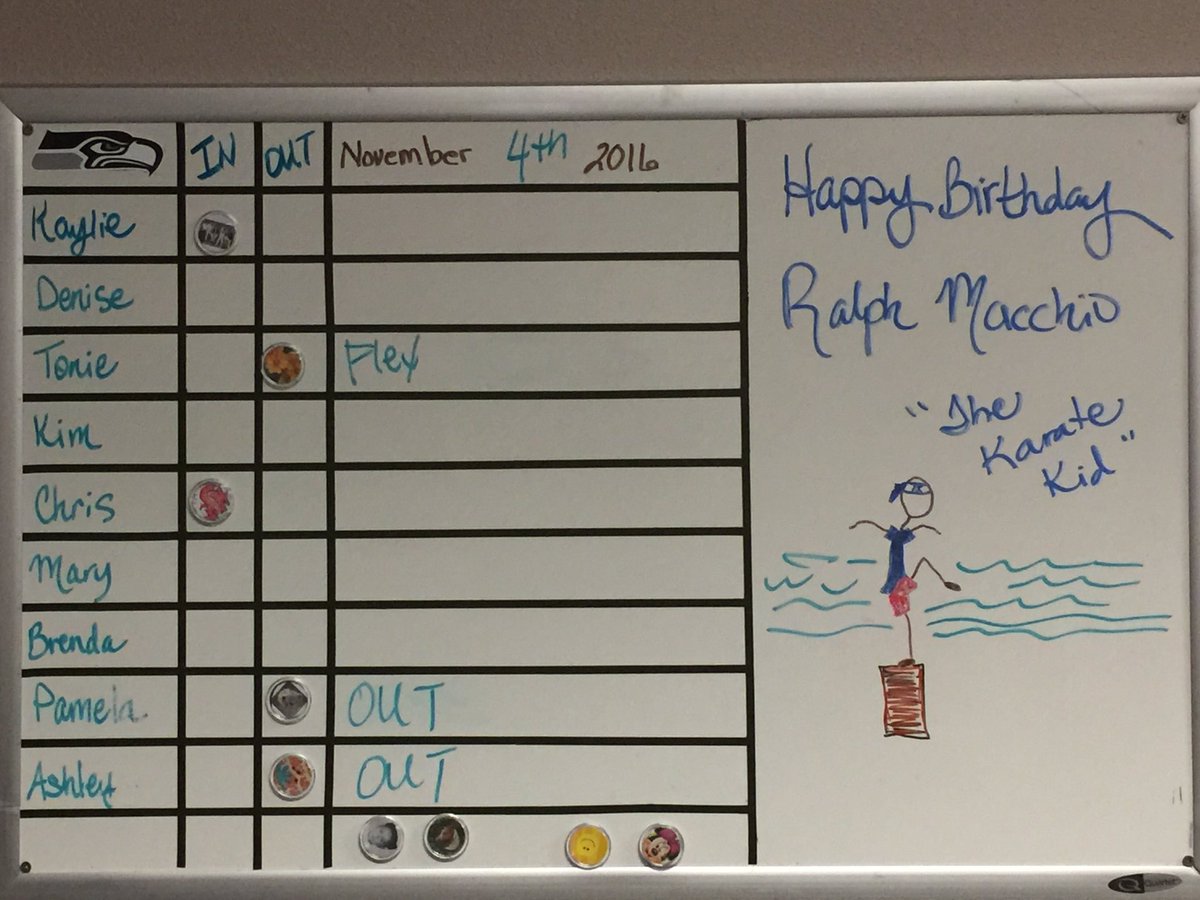 IN OUT November 4th 2016
Kaylie
Denise
Tonie Flex
Kim
Chris
Mary
Brenda
Pamela OUT
Ashley OUT
Happy Birthday
Ralph Macchio
"The
Karate
Kid"
Quartet